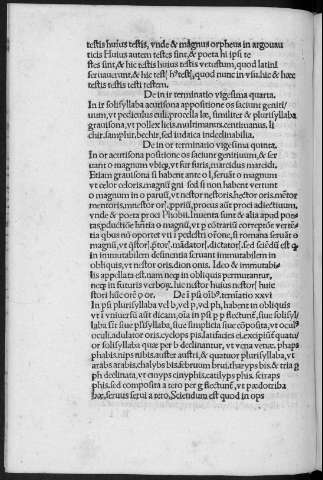 testis huius testis, vnde & magnus orpheus in argouau
ticis Huius autem testes sint, & poeta hi ipsi te
stes sint, & hic testis huius testis vetustum, quod latini
seruauerunt, & hic quod nunc in vsu, hic & hæc
testis testis testi testem.
De in ir terminatio vigesima quarta.
In ir solisyllaba acutisona appositione os faciunt geniti/
uum, vt pediculus culi, procella læ, similiter & plurisyllaba
grauisona, vt pollex licis. multimanus. centimanus. li
chir. samphir. bechir, sed iudaica indeclinabilia.
De in or terminatio vigesima quinta.
In or acutisona positione os faciunt genitiuum, & ser
uant o magnum vbiqz, vt fur furis, marcidus marcidi.
Etiam grauisona si habent ante o l, seruant o magnum
vt celor celoris. magni gni sed si non habent vertunt
o magnum in o paruum, vt nestor nestoris. hector oris. mētor
mentoris, procus aūt proci adiectiuum,
vnde & poeta proci Phobii. Inuenta sunt & alia apud poe/
tas productione vt p cōtrariū corripiūt
qbus nō oportet vti i pedestri oratione, si romana seruāt o
magnū, vt sed sciēdū est q
in immutabilem desinentia seruant immutabilem in
obliquis, vt nestor oris. dion onis. Ideo & immutabi/
lis appellata est. nam neqz in obliquis permutantur,
neqz in futuris verborum, hic nestor huius nestor huic
stori hūc orē o or. De i psi terminatio xxvi
In psi plurisyllaba vel b, vel p, vel ph, habent in obliquis
vt i vniuersū aūt dicam, oīa in psi p p flectunt, siue solisyl/
laba sīt siue plisyllaba, siue simplicia siue cōposita, vt ocul
oculi. adulator oris. cyclops pis. latifacies ei. excipiūt quatu/
or solisyllaba quæ per b declinantur, vt vena venæ, phaps
phabis. nips nibis. auster austri, & quatuor plurisyllaba, vt
arabs arabis. chalybs bis. æs bruum brui, tharyps bis, & tria q
ph declinata, vt cinyps cinyphis. catilyps phis. scraps
phis. sed composita a tero per g flectunt, vt pædotriba
bæ, seruus serui a tero, Sciendum est quod in ops